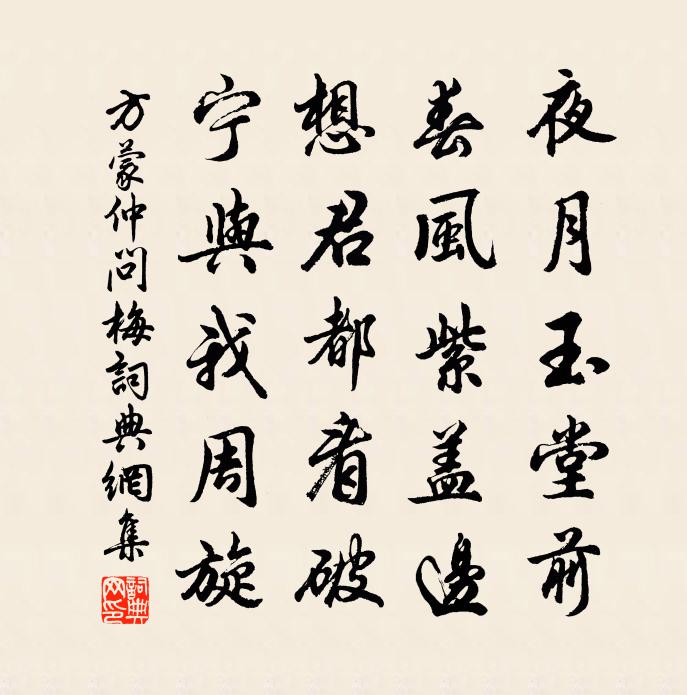 夜月玉堂前
春風紫盖邊
想君都看破
宁與我周旋
方蒙仲問梅詞典網集
詞典网印